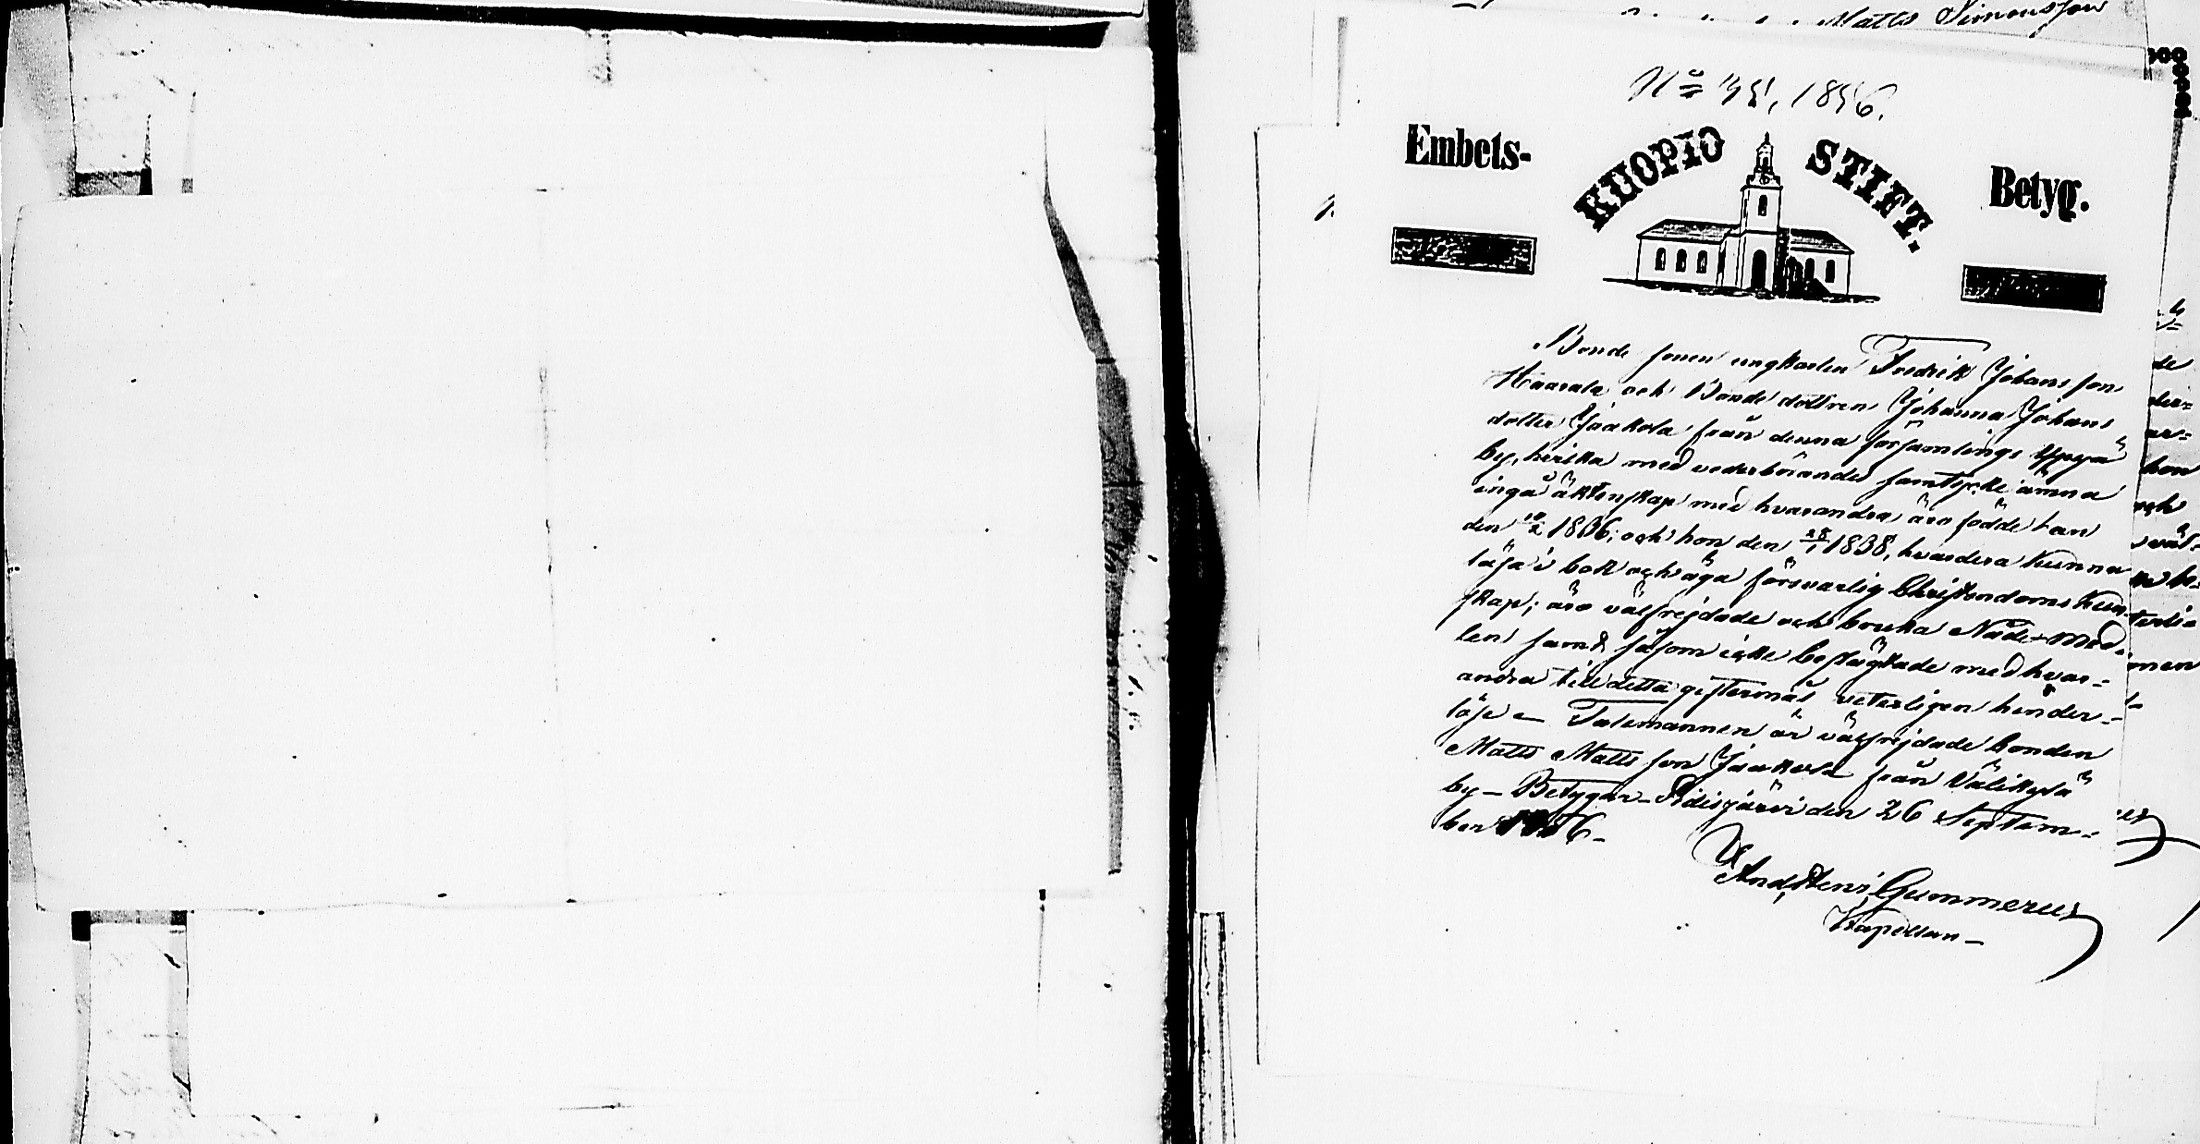 Matts Simonsson
1856.
Embets-
KUOPIO STIFT.
Betyg.
Bonde sonen ungkarlen Fredrik Johans son
Haarala och Bonde dottren Johanna Johans
dotter Jaakola från denna församlings Yppyä
by, hvilka med vederbörandes samtycke ämna
ingå äktenskap med hvarandra äro födde han
den 1836; och hon den 1838, hvardera kunna
läsa i bok och äga försvarlig Christendoms kun-
skap; äro välfrejdade och bruka Nåde-med-
len samt såsom icke beslägtade med hvar-
andra till detta giftermål veterligen hinder-
löse – Talemannen är välfrejdade bonden
Matts Matts son Jaakola från Välikylä
by – Betygar – Pidisjärvi den 26 Septem-
ber 1856 –
And. Henr. Gummerus
Kapellan –